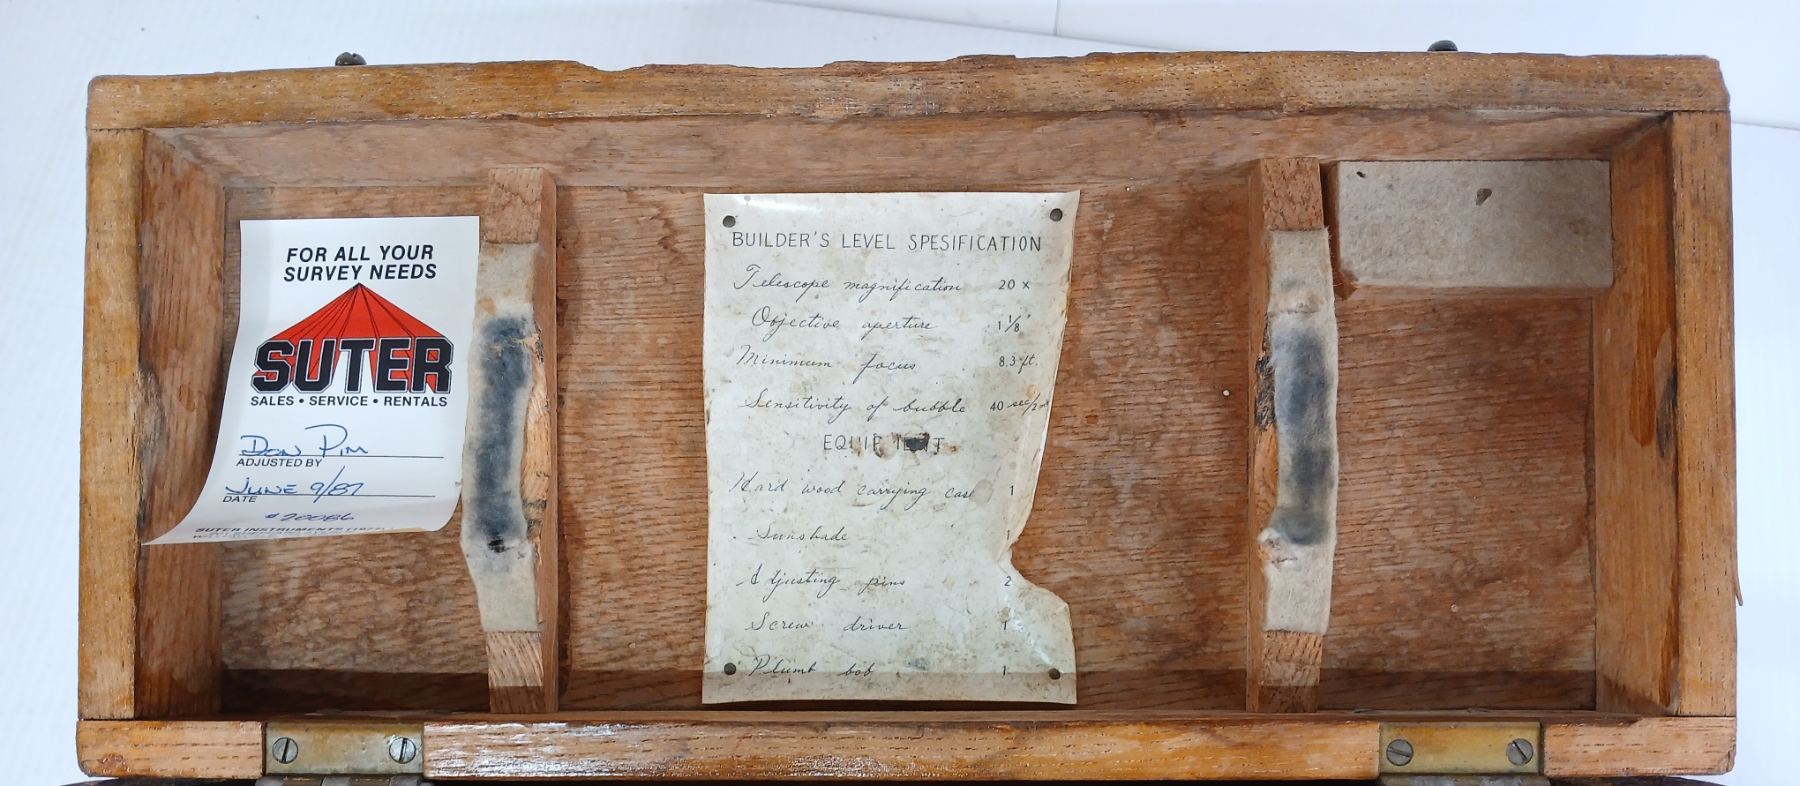 FOR ALL YOUR
SURVEY NEEDS
SUTER
SALES • SERVICE • RENTALS
Don Pim
ADJUSTED BY
JUNE 9/87
DATE
# 20086
SUTER INSTRUMENTS
BUILDER'S LEVEL SPESIFICATION
Telescope magnification 20 x
Objective aperture 1 1/8"
Minimum focus 8.3 ft.
Sensitivity of bubble 40 sec/2
EQUIP
Hard wood carrying case 1
Sunshade 1
Adjusting pins 2
Screw driver 1
Plumb bob 1